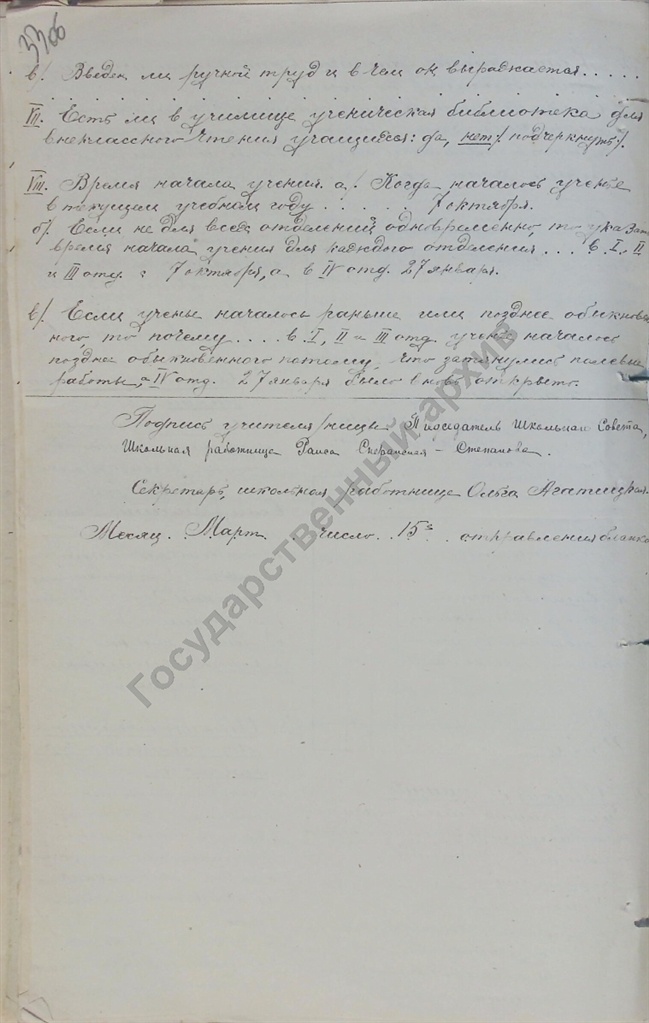 33об
в/. Введен ли ручной труд и в чем он выражается.....
VII. Есть ли в училище ученическая библиотека для
внеклассного чтения учащийся: да, нет /подчеркнуть/.
VIII. Время начала учения а/. Когда началось ученье
в текущем учебном году ..... 7 октября.
б/. Если не для всех отделений одновременно то указать
время начала учения для каждого отделения... в I, II
и III отд: 7 октября, а в IV отд. 27 января.
в/. Если ученье началось раньше или позднее обыкновен
ного то почему.... в I, II и III отд. ученье началось
позднее обыкновенного потому, что затянулись полевые
работы, а IV отд. 27 января было вновь открыто.
Подпись учителя /ницы Председатель Школьнаго Совета,
Школьная работница Раиса Сперанская - Степанова.
Секретарь, школьная работница Ольга
Месяц. Март. число. 15го. отправления бланка
Государственный архив